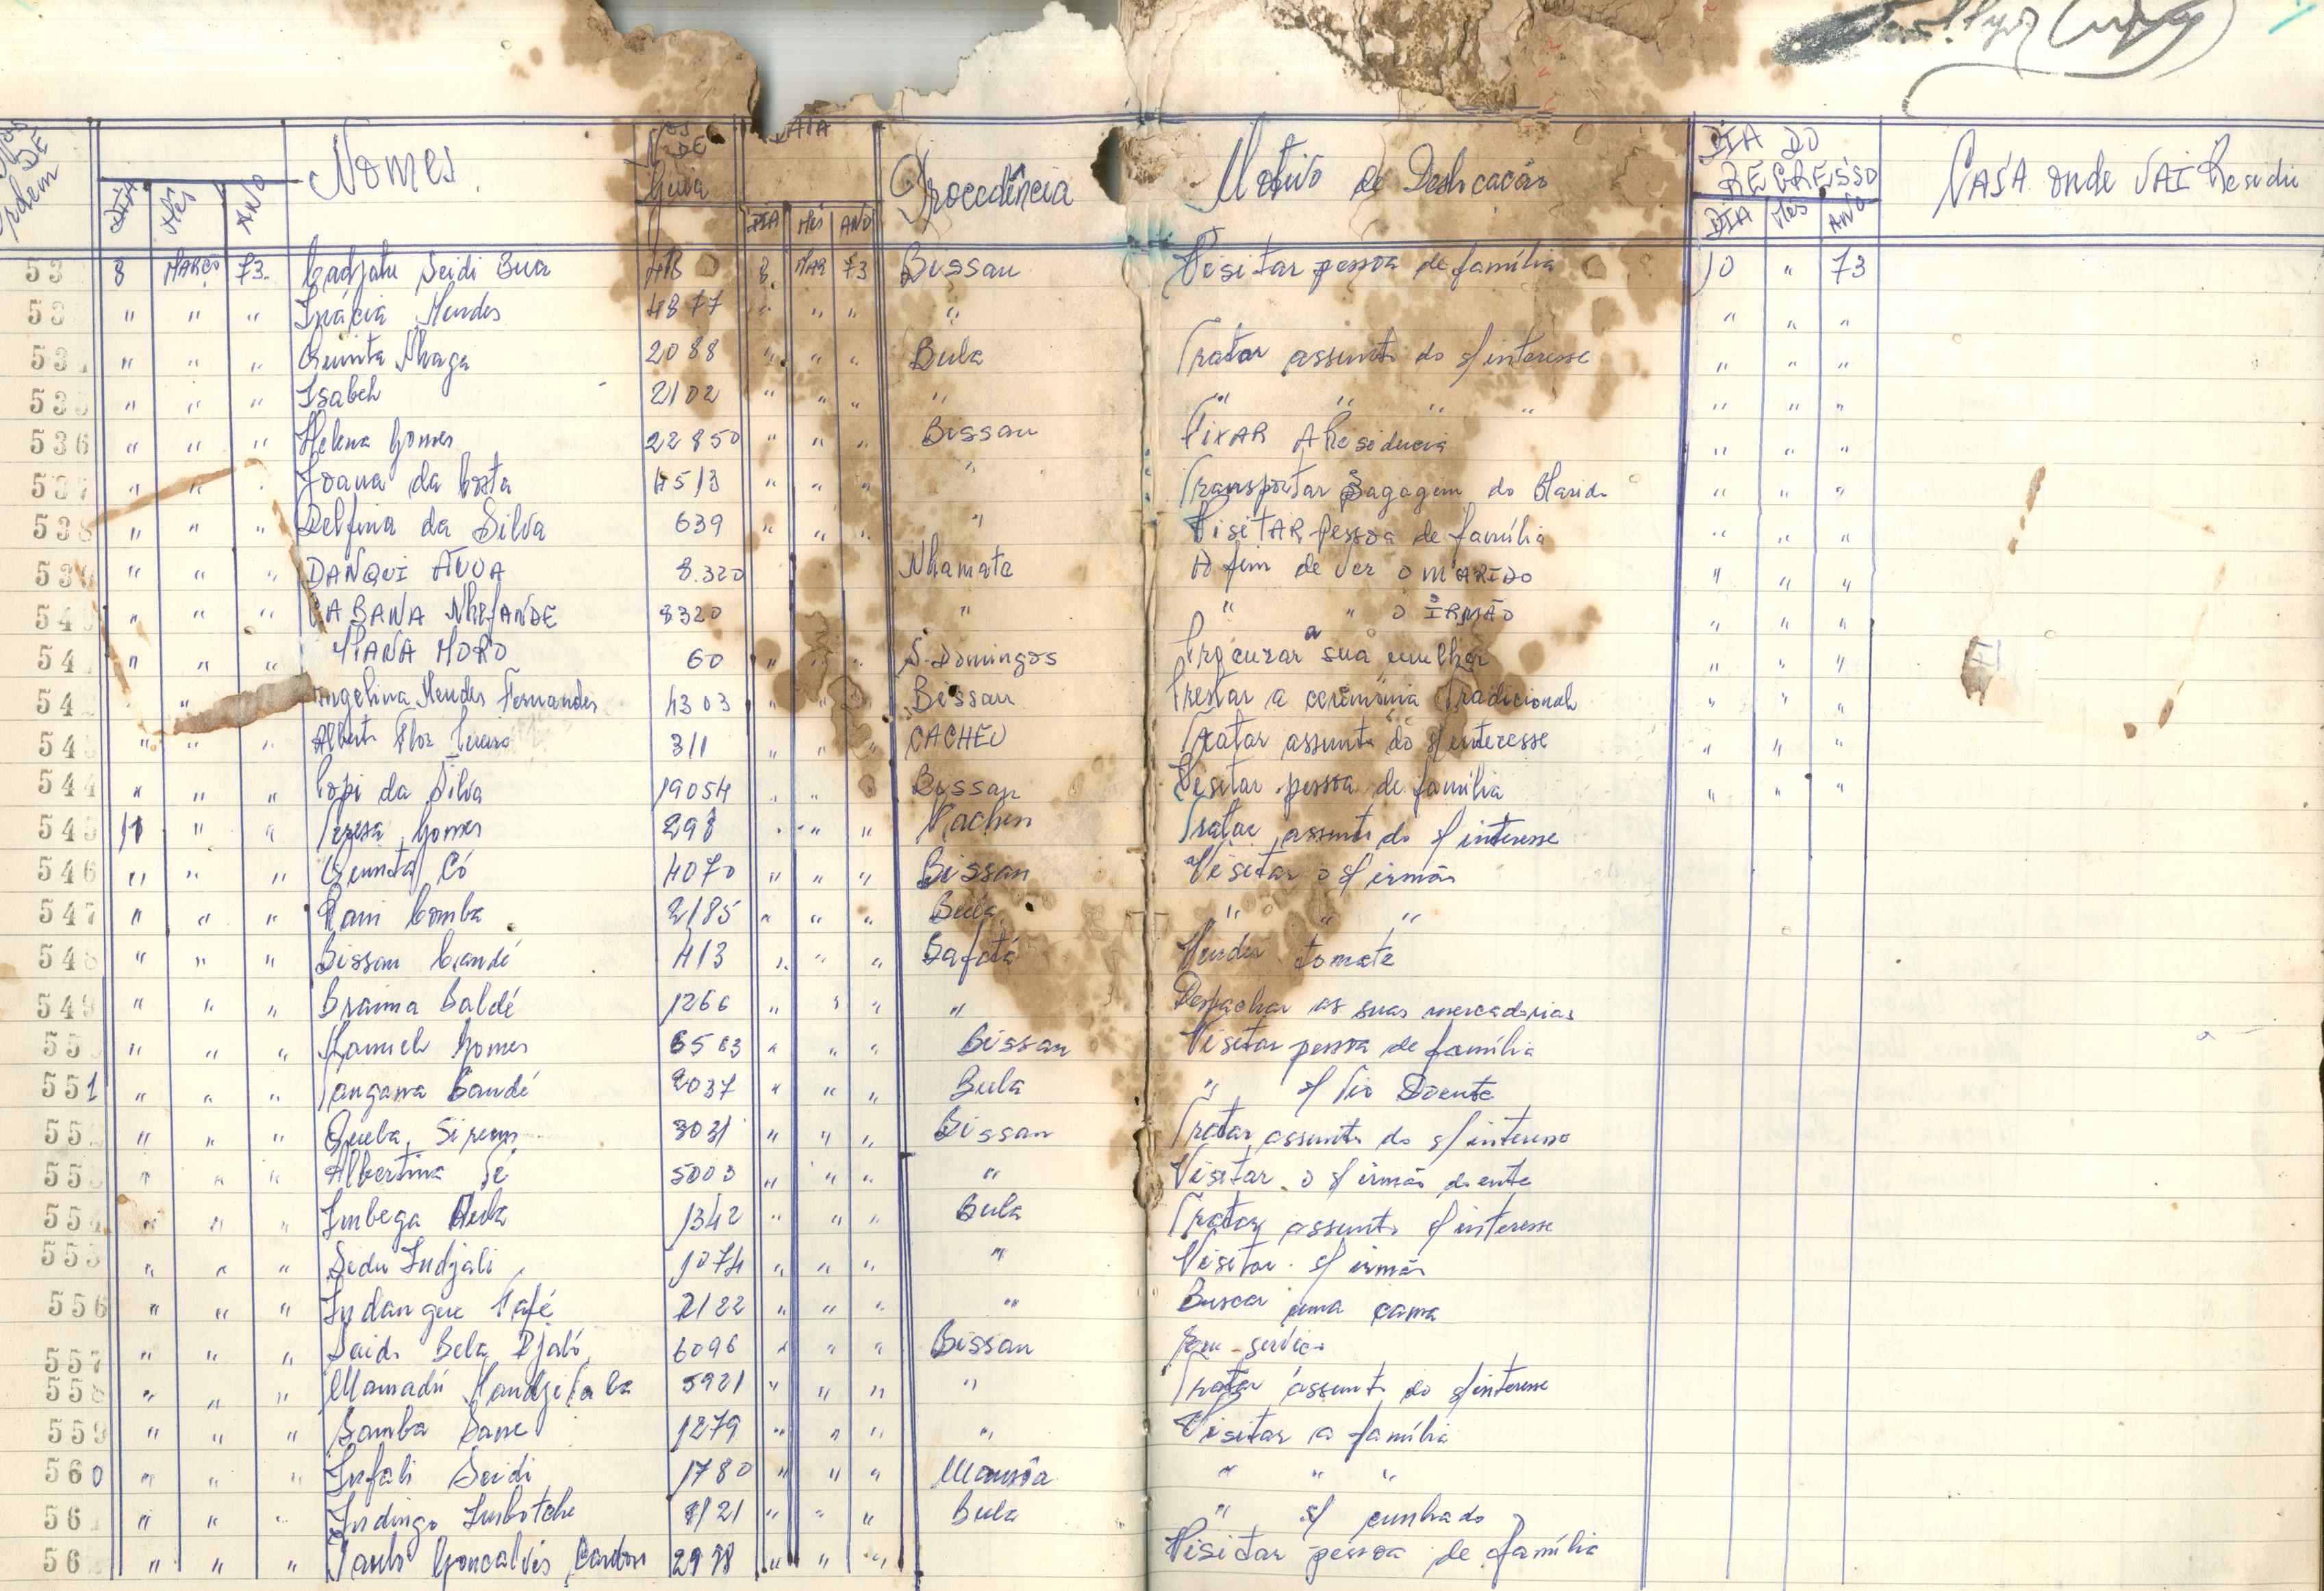 Nos DE Ordem
DIA Mês ANO Nomes Nos DE Guia DATA DIA Mês ANO Procedência Motivo de Deslocação DIA DO REGRESSO DIA Mês ANO CASA onde VAI Residir
53 8 MARÇO 73 Cadjatu Seidi Bua 418 8 MAR 73 Bissau Visitar pessoa de família 10 " 73
53 " " " Inácia Mendes 4877 " " " " " " "
53 " " " Quinta Nhaga 2088 " " " Bula Tratar assunto do s/ interesse " " "
535 " " " Isabel 2102 " " " " " " " " " " "
536 " " " Helena Gomes 22850 " " " Bissau FIXAR A Residencia " " "
537 " " " Joana da Costa 4513 " " " " Transportar Bagagem do Marido " " "
538 " " " Delfina da Silva 639 " " " " VisitAR pessoa de família " " "
539 " " " DANQUI 8.320 Nhamate A fim de ver o MARIDO " " "
540 " " " CABANA 8320 " " " O IRMÃO " " "
54 " " " MORO 60 " " " S. Domingos Procurar a sua mulher " " "
54 " Angelina Mendes Fernandes 4303 " " " Bissau Prestar a cerémónia Tradicional " " "
54 " " " Alberto Flor 311 " " " CACHEU Tratar assunto do s/ interesse " " "
544 " " " da Silva 19054 " " Bissau Visitar pessoa de família " " "
545 " " Teresa Gomes 298 " " " Cacheu Tratar assunto do s/ interesse
546 " " " Quinta Có 4070 " " " Bissau Visitar o s/ irmão
547 " " " Comba 2185 " " " Bula " " "
548 " " " Bissau Candé 413 " " " Bafatá Vender tomate
549 " " " Braima Baldé 1266 " " " " Despachar as suas mercadorias
55 " " " Manuel Gomes 6503 " " " Bissau Visitar pessoa de família
551 " " " Tangana Candé 2037 " " " Bula " s/ Tio Doente
55 " " " Queba 3031 " " " Bissau Tratar assunto do s/ interesse
55 " " " Albertina Sé 5003 " " " " Visitar o s/ irmão doente
554 " " " Imbega 1342 " " " Bula Tratar assunto s/ interesse
555 " " " Sidu Indjali 1074 " " " " Visitar s/ irmão
556 " " " Indangue Fafé 2122 " " " " Buscar uma cama
557 " " " Saido Bela Djaló 6096 " " " Bissau Em serviço
558 " " " Mamadú 5921 " " " " Tratar assunto do s/ interesse
559 " " " Samba Sane 1279 " " " " Visitar a família
560 " " " Infali Seidi 1780 " " " Mansôa " " "
56 " " " Indingo Imbotche 8121 " " " Bula " s/ cunhado
56 " " " Paulo Goncalvés Cardoso 2998 " " " Visitar pessoa de família